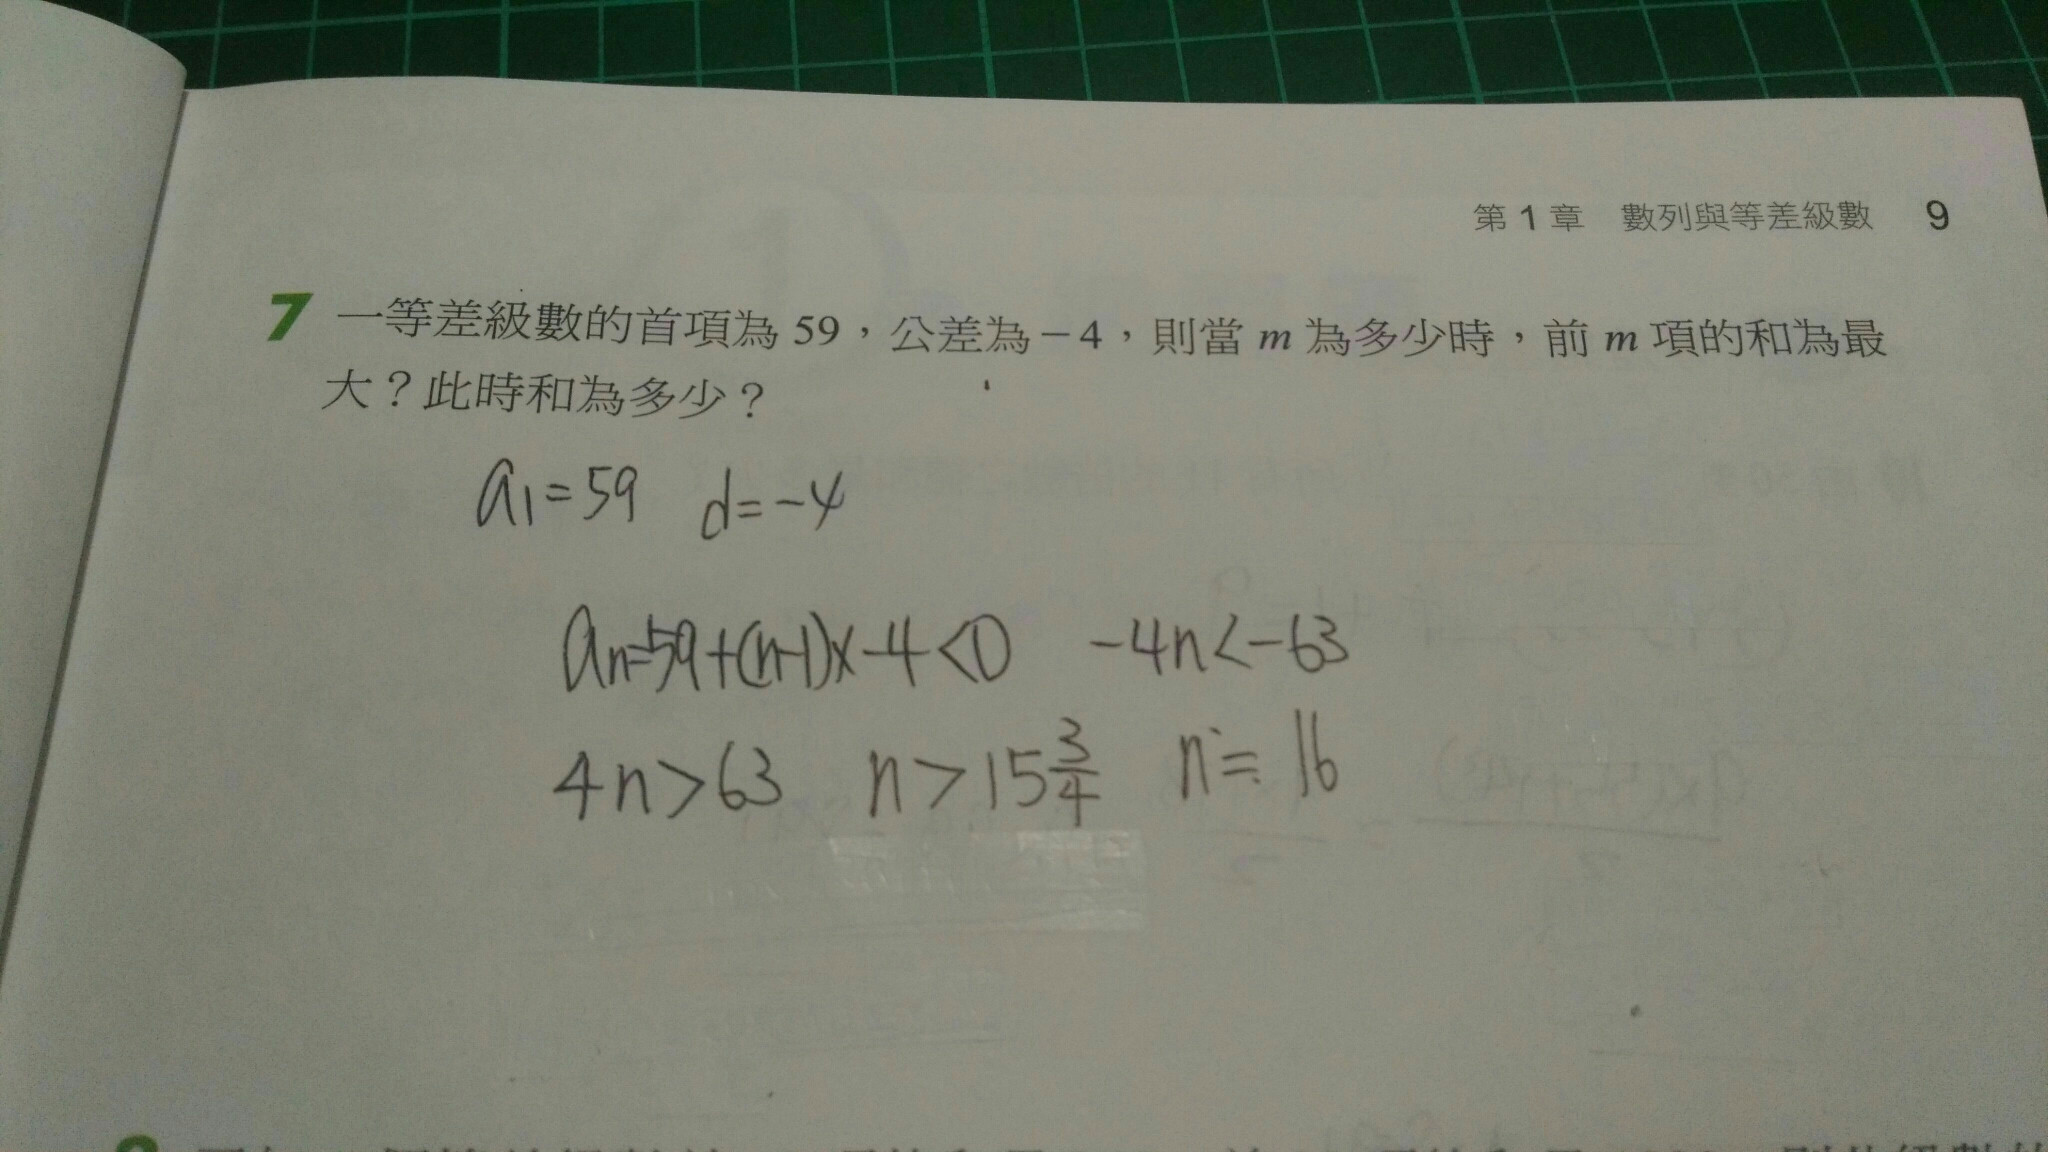 第 1 章 數列與等差級數 9
7 一等差級數的首項為 59，公差為－4，則當 m 為多少時，前 m 項的和為最
大？此時和為多少？
a₁=59 d=-4
an=59+(n-1)x-4<0 -4n<-63
4n>63 n>15 3/4 n≒16